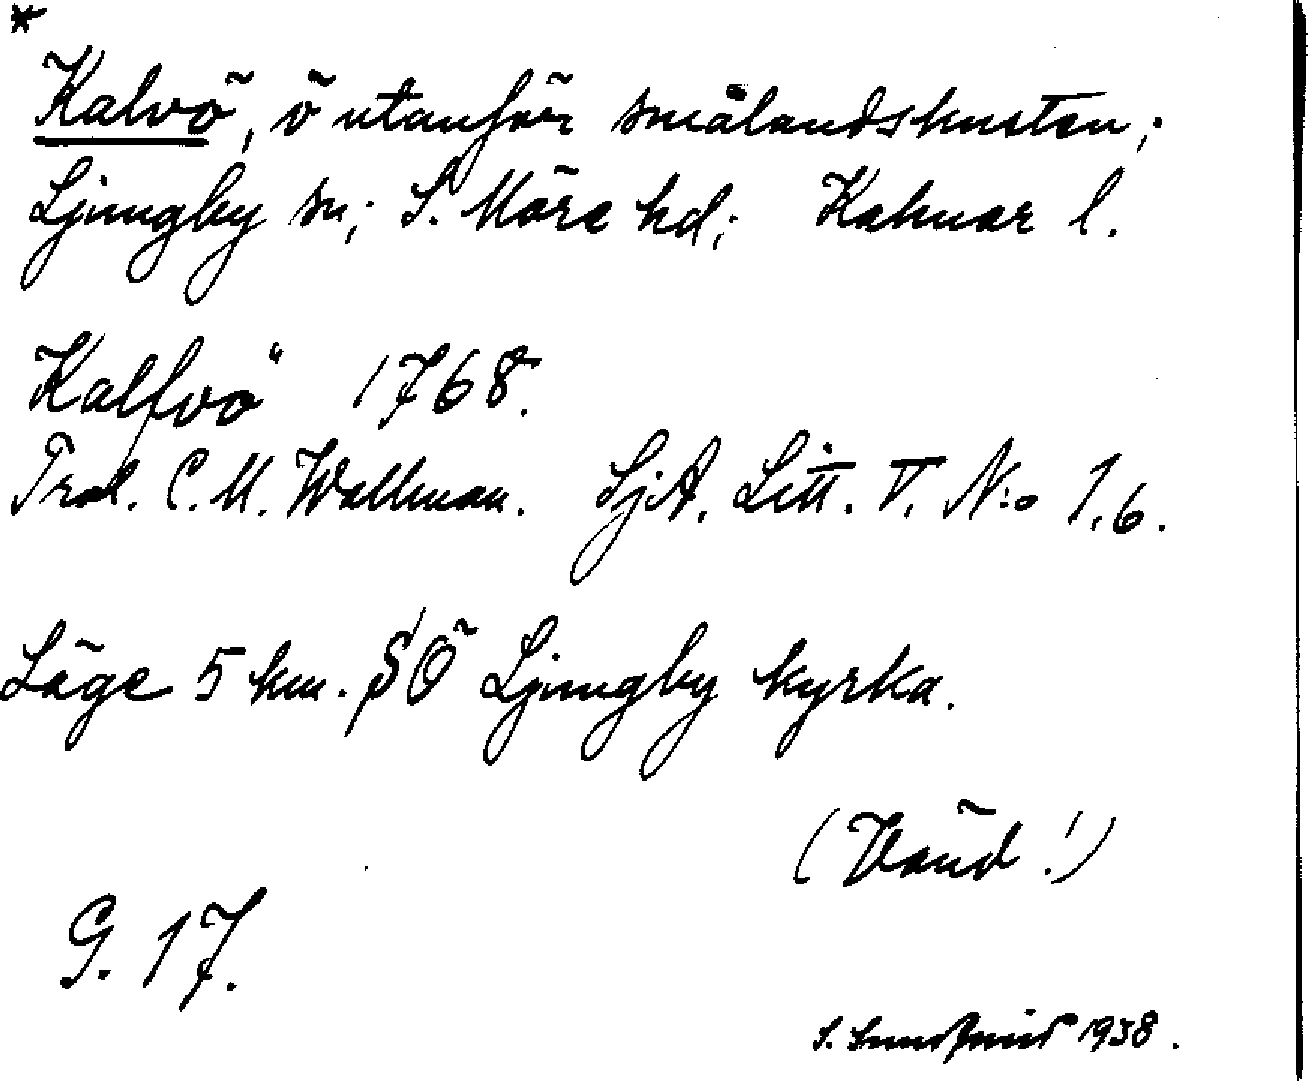 *
Kalvö, ö utanför smålandskusten;
Ljungby sn; S. Möre hd; Kalmar l.
Kalfvö 1768.
Trol. C. M. Wallman. SjA. Litt. V. N:o 1.6.
Läge 5 km. SÖ Ljungby kyrka.
(Vänd!)
G. 17.
S. 1938.